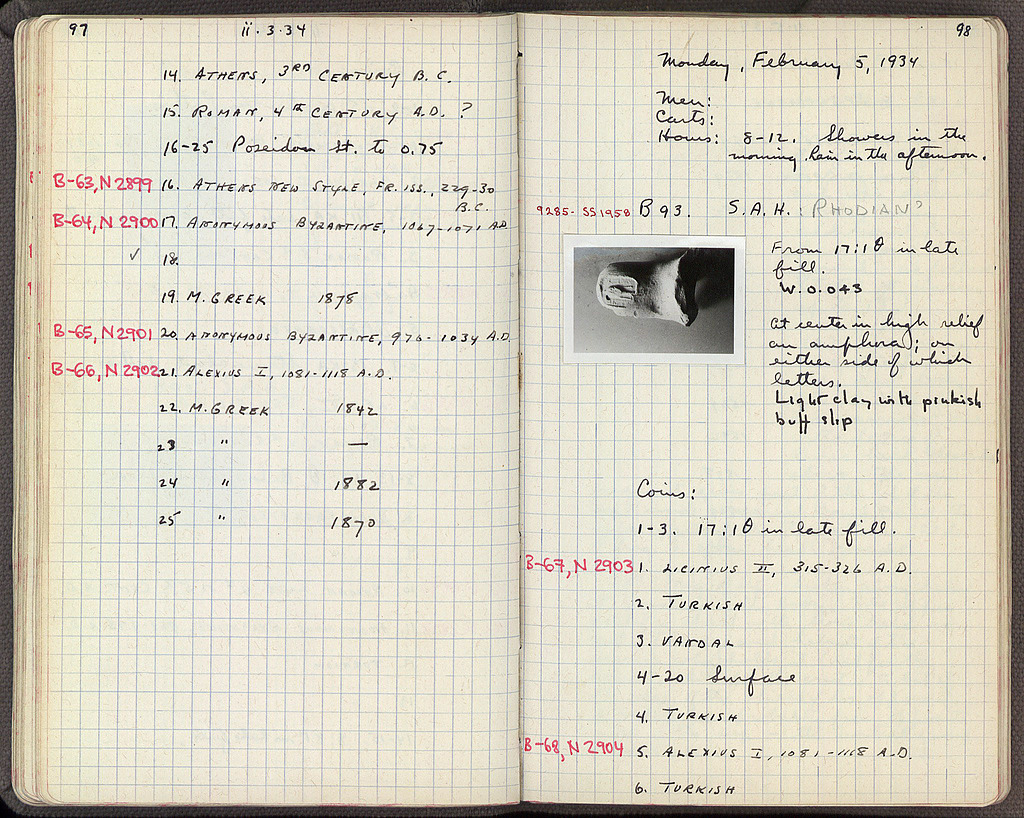 97
ii. 3. 34
14. ATHENS, 3RD CENTURY B. C.
15. ROMAN, 4th CENTURY A.D. ?
16-25 Poseidon St. to 0.75
B-63, N 2899 16. ATHENS NEW STYLE, FR. ISS., 229-30
B.C.
B-64, N 2900 17. ANONYMOUS BYZANTINE, 1067-1071 A.D.
✓ 18.
19. M. GREEK 1878
B-65, N 2901 20. ANONYMOUS BYZANTINE, 976-1034 A.D.
B-66, N 2902 21. ALEXIUS I, 1081-1118 A.D.
22. M. GREEK 1842
23 " —
24 " 1882
25 " 1870
98
Monday, February 5, 1934
Men:
Carts:
Hours: 8-12. Showers in the
morning. Rain in the afternoon.
9285- SS 1958 B 93. S. A. H.: RHODIAN?
From 17:1Θ in late
fill.
W. 0.043
At center in high relief
an amphora; on
either side of which
letters.
Light clay with pinkish
buff slip
Coins:
1-3. 17:1Θ in late fill.
B-67, N 2903 1. LICINIUS II, 315-326 A.D.
2. TURKISH
3. VANDAL
4-20 Surface
4. TURKISH
B-68, N 2904 5. ALEXIUS I, 1081-1118 A.D.
6. TURKISH